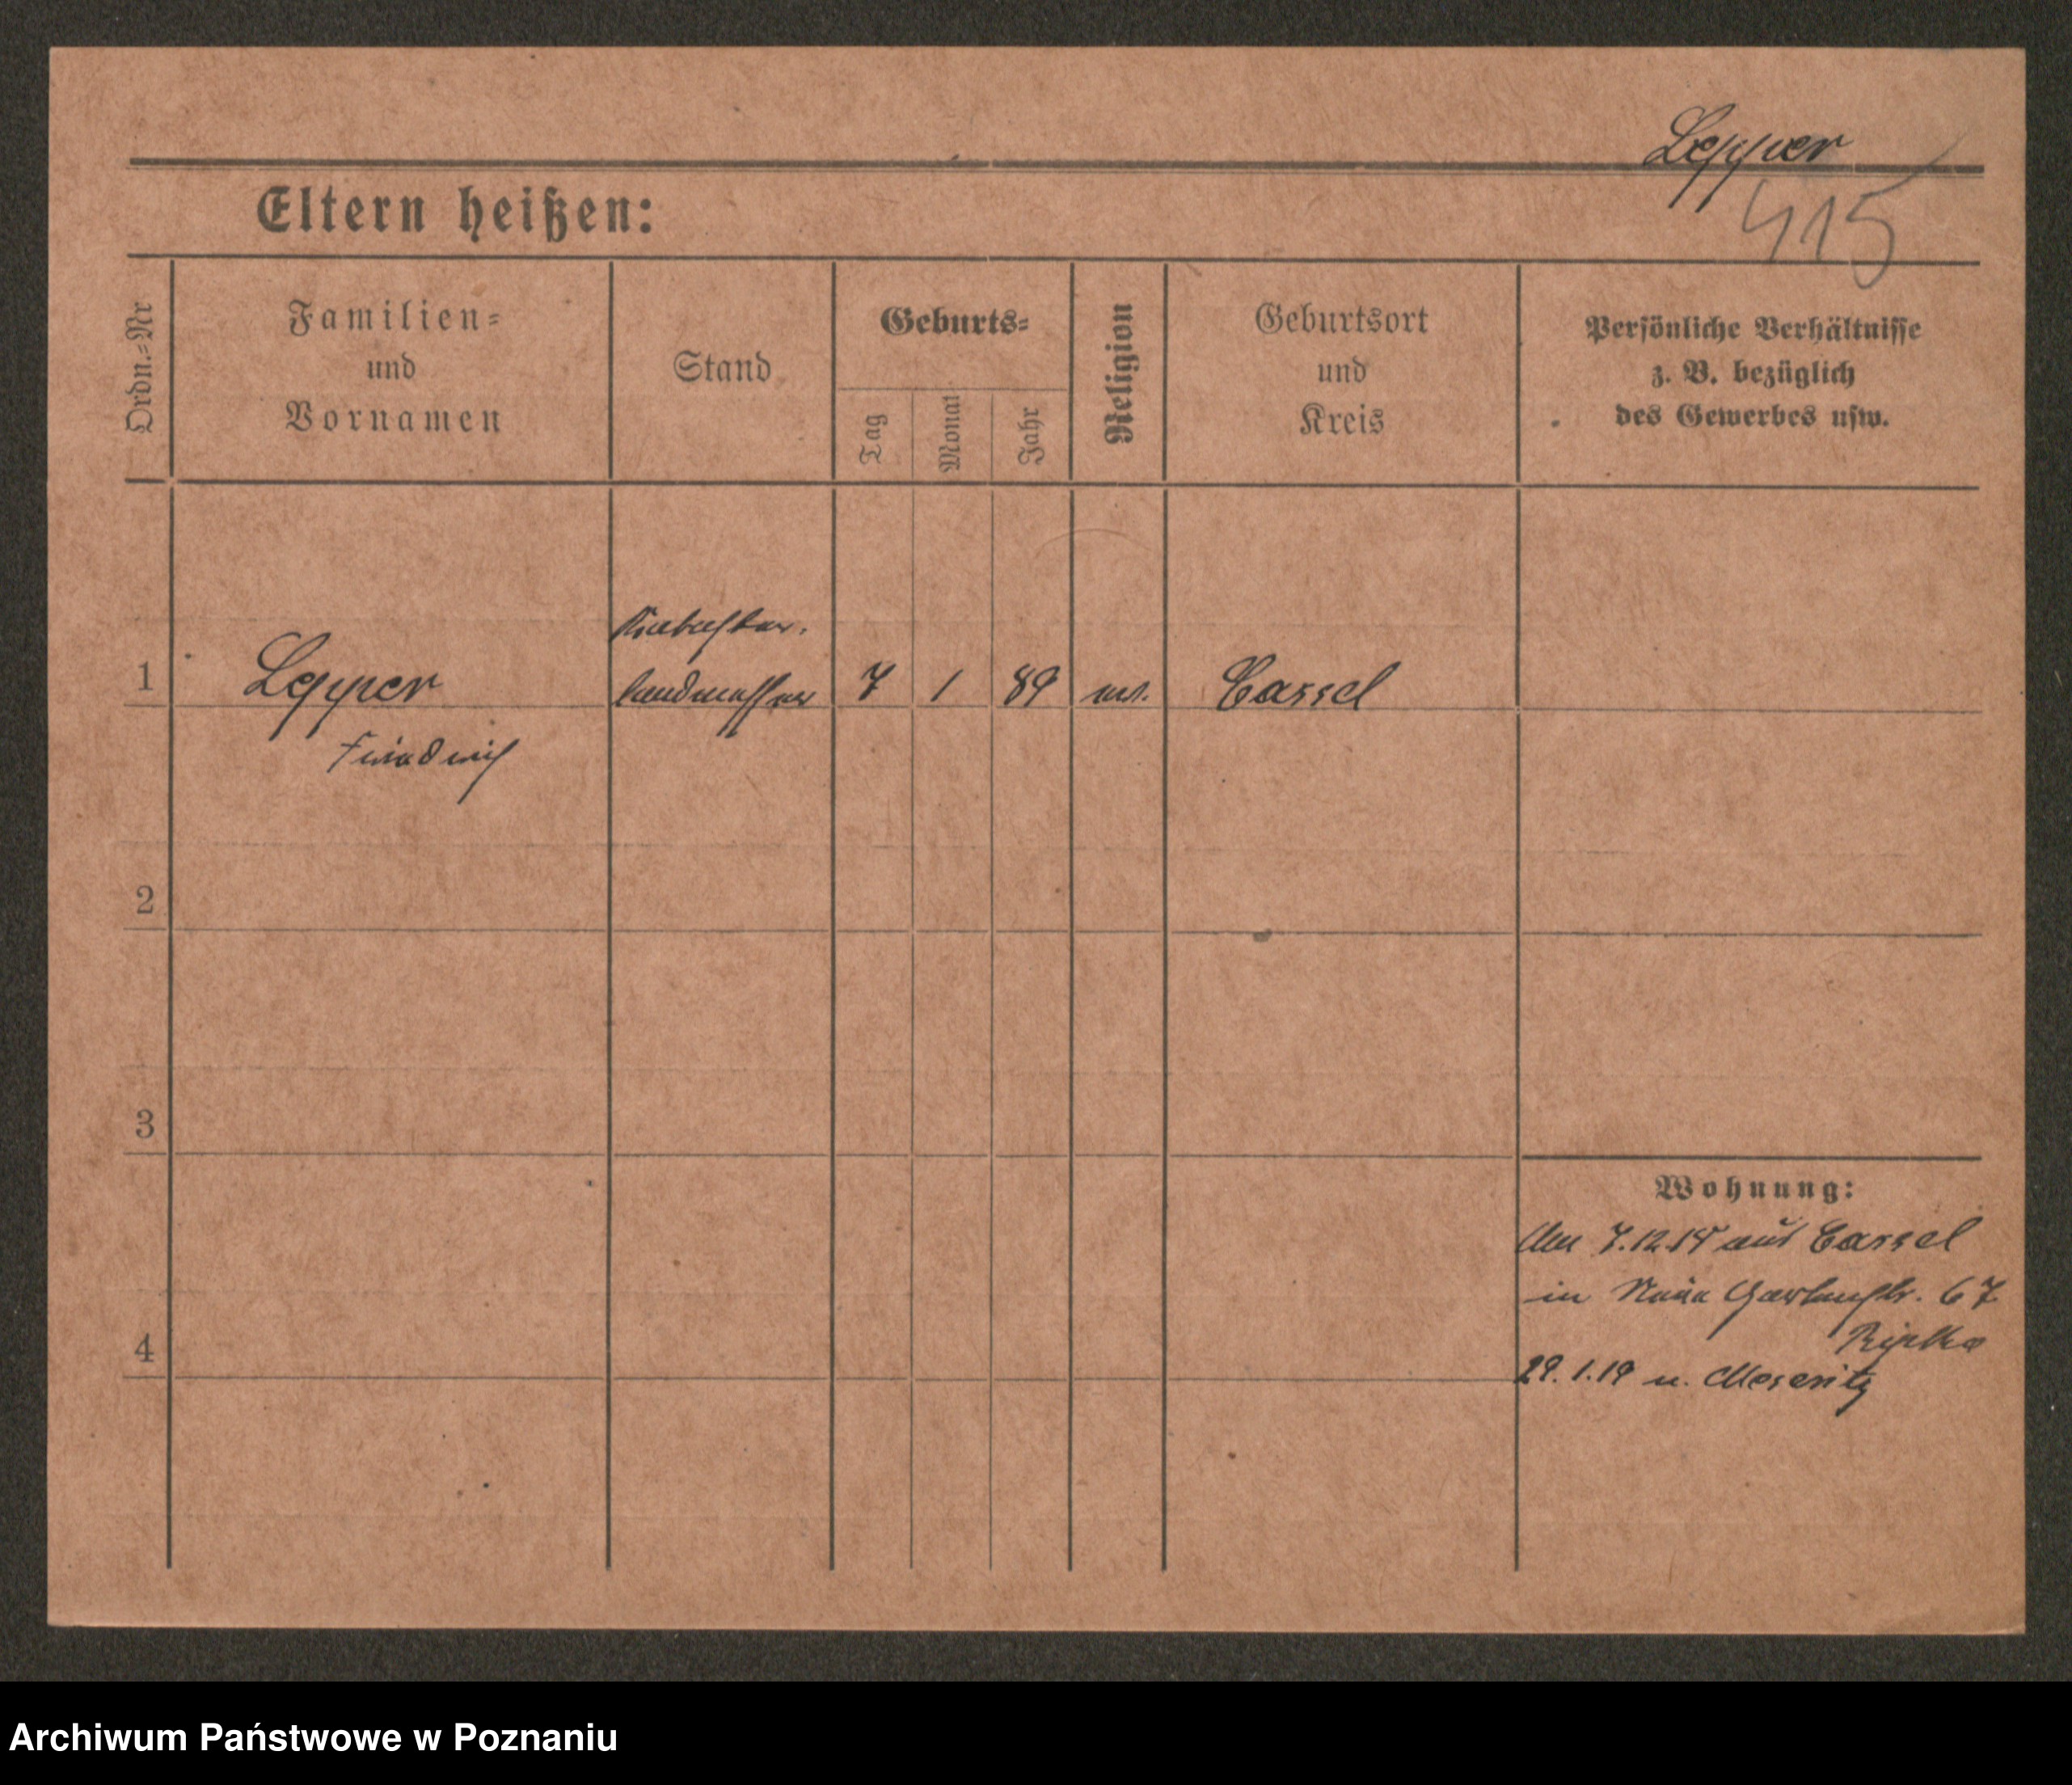 Lepper
415
Eltern heißen:
Ordn.=Nr
Familien=
und
Vornamen
Stand
Geburts=
Tag
Monat
Jahr
Religion
Geburtsort
und
Kreis
Persönliche Verhältnisse
z. B. bezüglich
des Gewerbes usw.
1
Lepper
Friedrich
landmesser
7
1
89
ev.
Cassel
2
3
4
Wohnung:
7.12.18 aus Cassel
in Neue Gartenstr. 67
29.1.19 n. Meseritz
Archiwum Państwowe w Poznaniu